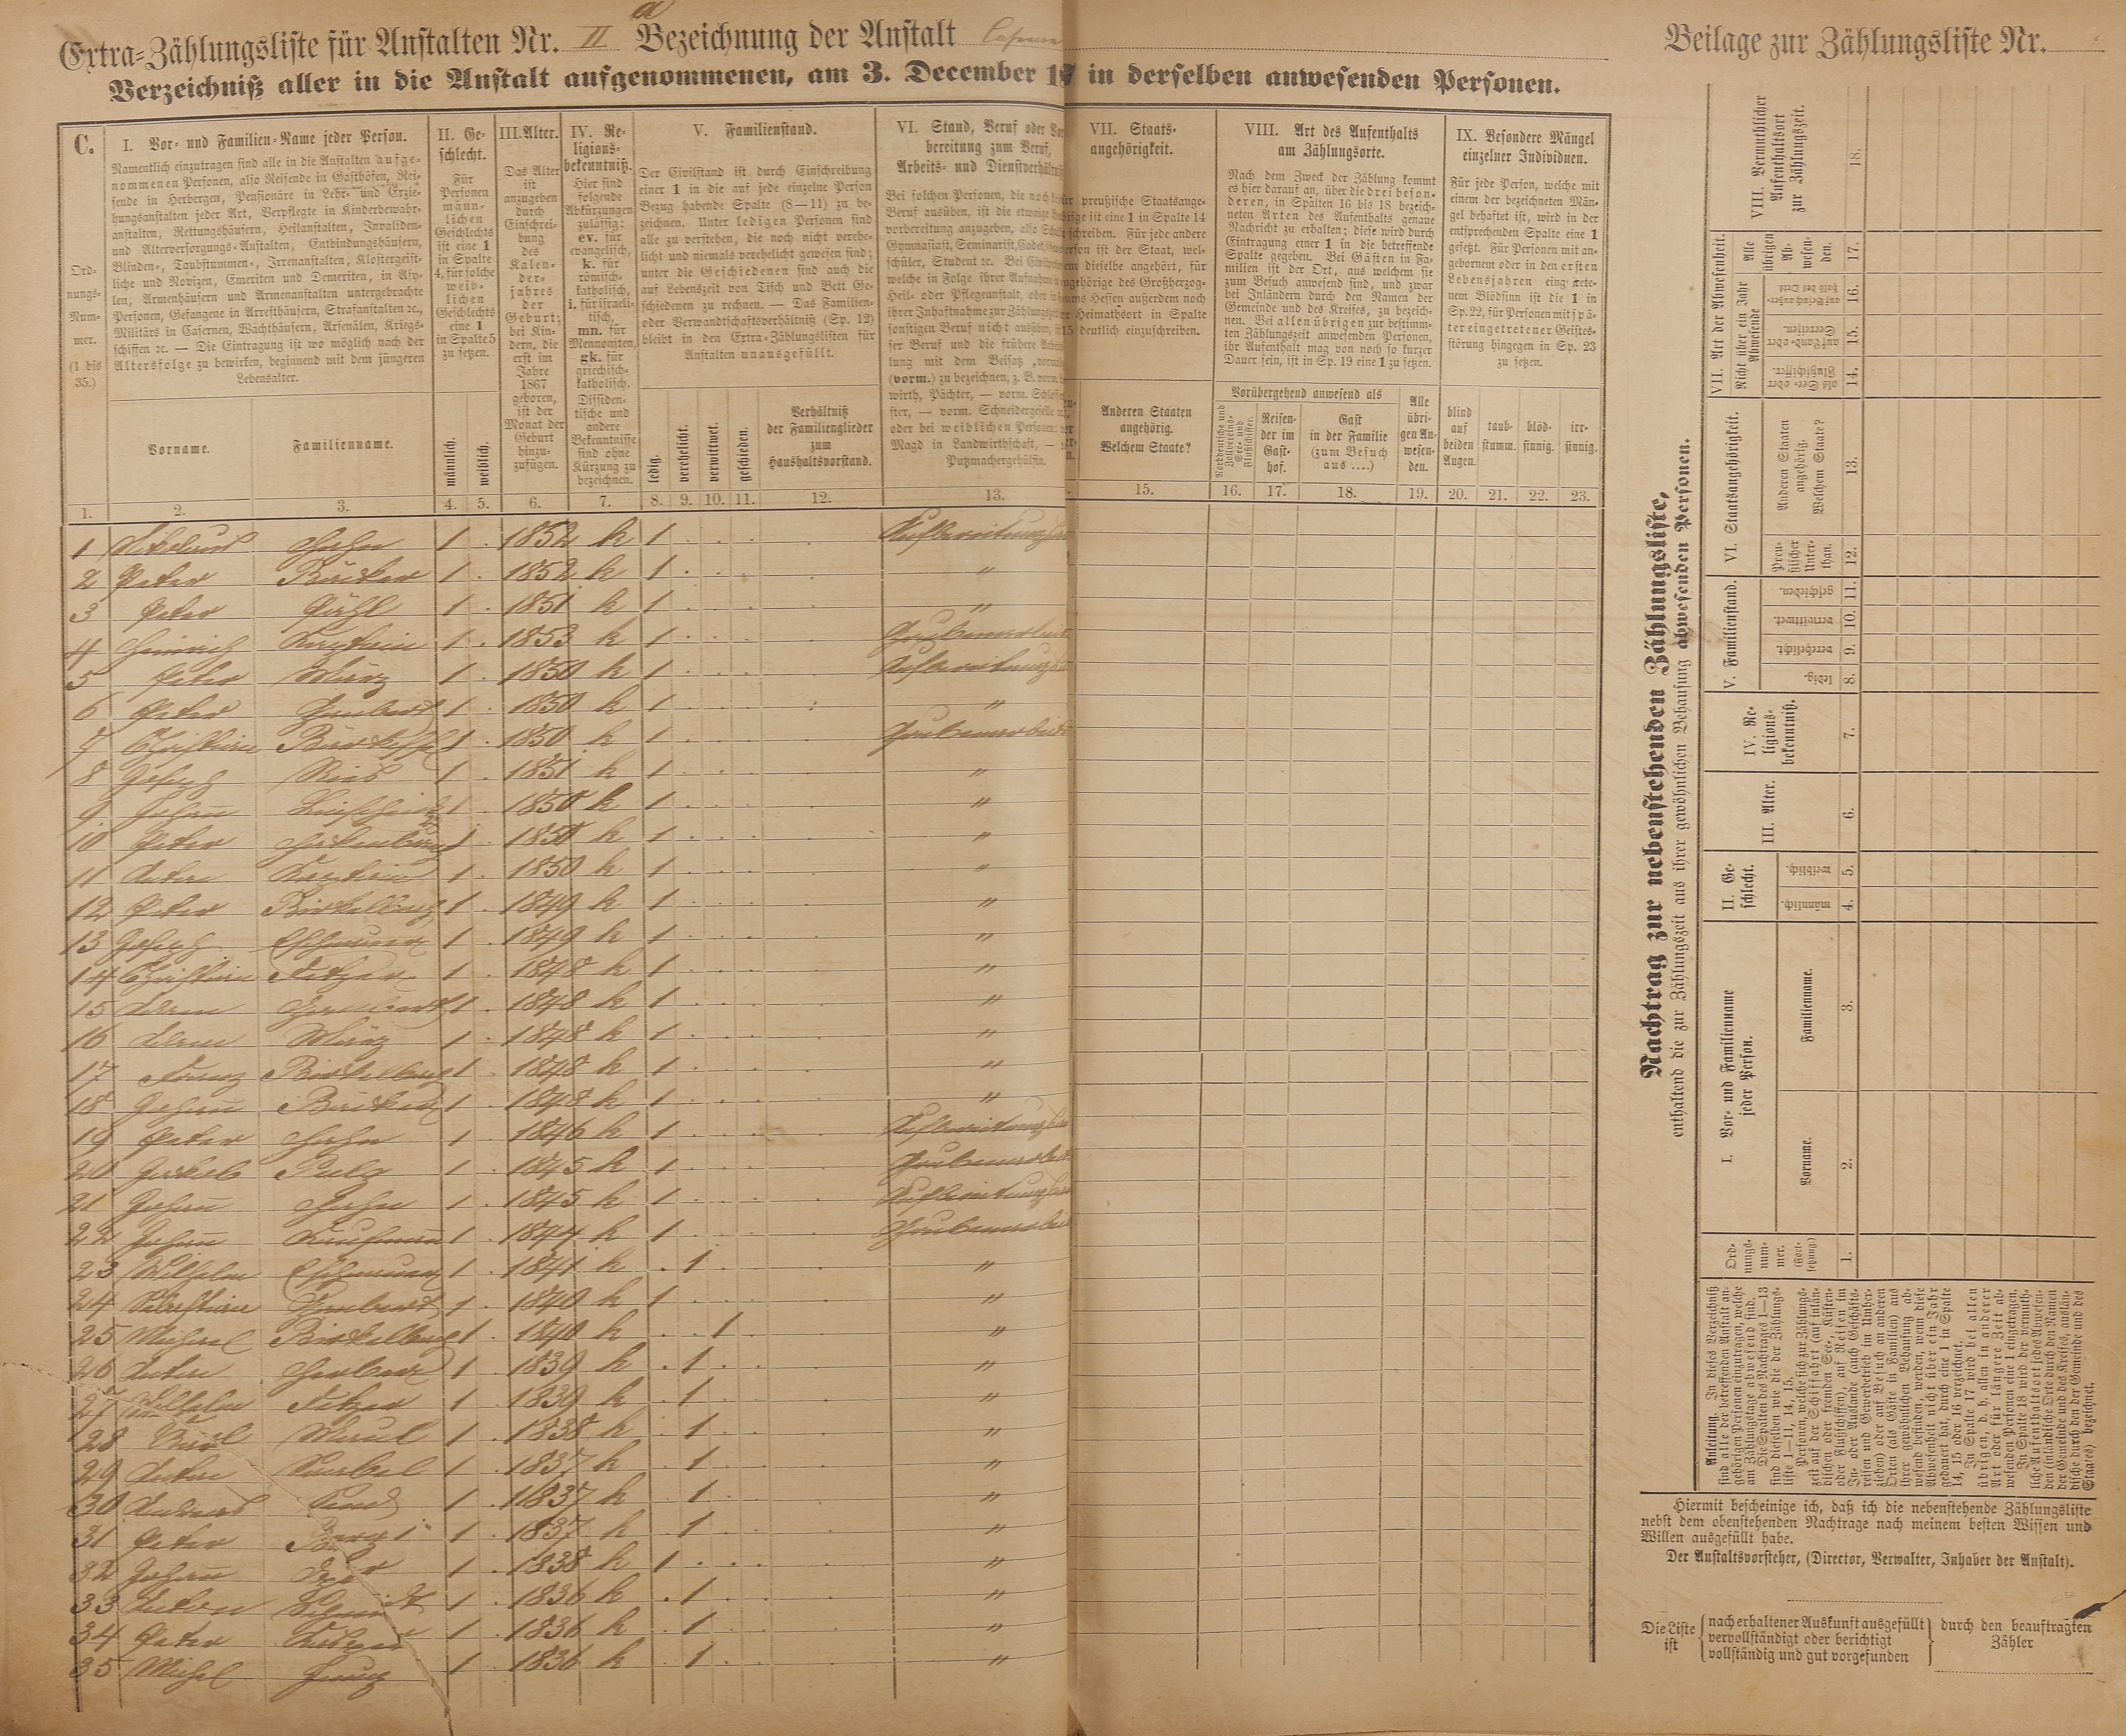 a
Extra-Zählungsliste für Anstalten Nr. II Bezeichnung der Anstalt Caserne
Verzeichniß aller in die Anstalt aufgenommenen, am 3. December 1 7 in derselben anwesenden Personen.
C.
Ord-
nungs-
Num-
mer.
(1 bis
35.)
I. Vor- und Familien-Name jeder Person.
Namentlich einzutragen sind alle in die Anstalten aufge-
nommenen Personen, also Reisende in Gasthöfen, Rei-
sende in Herbergen, Pensionäre in Lehr- und Erzie-
hungsanstalten jeder Art, Verpflegte in Kinderbewahr-
anstalten, Rettungshäusern, Heilanstalten, Invaliden-
und Altersversorgungs-Anstalten, Entbindungshäusern,
Blinden-, Taubstummen-, Irrenanstalten, Klostergeist-
liche und Novizen, Emeriten und Demeriten, in Asy-
len, Armenhäusern und Armenanstalten untergebrachte
Personen, Gefangene in Arresthäusern, Strafanstalten ꝛc.,
Militärs in Casernen, Wachthäusern, Arsenälen, Kriegs-
schiffen ꝛc. — Die Eintragung ist wo möglich nach der
Altersfolge zu bewirken, beginnend mit dem jüngeren
Lebensalter.
Vorname.
Familienname.
II. Ge-
schlecht.
Für
Personen
männ-
lichen
Geschlechts
ist eine 1
in Spalte
4, für solche
weib-
lichen
Geschlechts
eine 1
in Spalte 5
zu setzen.
männlich.
weiblich.
III. Alter.
Das Alter
ist
anzugeben
durch
Einschrei-
bung
des
Kalen-
der-
jahres
der
Geburt;
bei Kin-
dern, die
erst im
Jahre
1867
geboren,
ist der
Monat der
Geburt
hinzu-
zufügen.
IV. Re-
ligions-
bekenntniß.
Hier sind
folgende
Abkürzungen
zulässig:
ev. für
evangelisch,
k. für
römisch-
katholisch,
i. für israeli-
tisch,
mn. für
Mennoniten,
gk. für
griechisch-
katholisch.
Dissiden-
tische und
andere
Bekenntnisse
sind ohne
Kürzung zu
bezeichnen.
V. Familienstand.
Der Civilstand ist durch Einschreibung
einer 1 in die auf jede einzelne Person
Bezug habende Spalte (8—11) zu be-
zeichnen. Unter ledigen Personen sind
alle zu verstehen, die noch nicht verehe-
licht und niemals verehelicht gewesen sind;
unter die Geschiedenen sind auch die
auf Lebenszeit von Tisch und Bett Ge-
schiedenen zu rechnen. — Das Familien-
oder Verwandtschaftsverhältniß (Sp. 12)
bleibt in den Extra-Zählungslisten für
Anstalten unausgefüllt.
ledig.
verehelicht.
verwittwet.
geschieden.
Verhältniß
der Familienglieder
zum
Haushaltsvorstand.
VI. Stand, Beruf oder Vor
bereitung zum Beruf,
Arbeits- und Dienstverhältniß
Bei solchen Personen, die noch
Beruf ausüben, ist die etwaige
vorbereitung anzugeben, also
Gymnasiast, Seminarist, Cadet,
schüler, Student ꝛc. Bei
welche in Folge ihrer Aufnahme
Heil- oder Pflegeanstalt, oder
ihrer Inhaftnahme zur Zählungs
sonstigen Beruf nicht ausüben,
ser Beruf und die frühere
lung mit dem Beisatz
(vorm.) zu bezeichnen, z. B. vorm.
wirth, Pächter, — vorm.
ster, — vorm. Schneidergeselle
oder bei weiblichen Personen:
Magd in Landwirthschaft, —
Putzmachergehülfin.
VII. Staats-
angehörigkeit.
für preußische Staatsange-
rige ist eine 1 in Spalte 14
schreiben. Für jede andere
erson ist der Staat, wel-
em dieselbe angehört, für
ngehörige des Großherzog-
ums Hessen außerdem noch
er Heimathsort in Spalte
15 deutlich einzuschreiben.
Anderen Staaten
angehörig.
Welchem Staate?
VIII. Art des Aufenthalts
am Zählungsorte.
Nach dem Zweck der Zählung kommt
es hier darauf an, über die drei beson-
deren, in Spalten 16 bis 18 bezeich-
neten Arten des Aufenthalts genaue
Nachricht zu erhalten; diese wird durch
Eintragung einer 1 in die betreffende
Spalte gegeben. Bei Gästen in Fa-
milien ist der Ort, aus welchem sie
zum Besuch anwesend sind, und zwar
bei Inländern durch den Namen der
Gemeinde und des Kreises, zu bezeich-
nen. Bei allen übrigen zur bestimm-
ten Zählungszeit anwesenden Personen,
ihr Aufenthalt mag von noch so kurzer
Dauer sein, ist in Sp. 19 eine 1 zu setzen.
Vorübergehend anwesend als
Norddeutsche und
Zollvereins-
See- und
Flußschiffer.
Reisen-
der im
Gast-
hof.
Gast
in der Familie
(zum Besuch
aus ....)
Alle
übri-
gen An-
wesen-
den.
IX. Besondere Mängel
einzelner Individuen.
Für jede Person, welche mit
einem der bezeichneten Män-
gel behaftet ist, wird in der
entsprechenden Spalte eine 1
gesetzt. Für Personen mit an-
gebornem oder in den ersten
Lebensjahren eingetrete-
nem Blödsinn ist die 1 in
Sp. 22, für Personen mit spä-
ter eingetretener Geistes-
störung hingegen in Sp. 23
zu setzen.
blind
auf
beiden
Augen.
taub-
stumm.
blöd-
sinnig.
irr-
sinnig.
1. 2. 3. 4. 5. 6. 7. 8. 9. 10. 11. 12. 13. 15. 16. 17. 18. 19. 20. 21. 22. 23.
1 Nikolaus Hahn 1 1852 k 1
2 Peter Bäcker 1 1852 k 1 〃
3 Peter 1 1851 k 1 〃
4 Heinrich 1 1853 k 1 Grubenarbeiter
5 Peter März 1 1850 k 1
6 Peter 1 1850 k 1 〃
7 Christian 1 1850 k 1 Grubenarbeiter
8 Joseph 1 1851 k 1 〃
9 Johann 1 1850 k 1 〃
10 Peter 1 1850 k 1 〃
11 Anton 1 1850 k 1 〃
12 Peter Birkelbach 1 1849 k 1 〃
13 Joseph 1 1849 k 1 〃
14 Christian 1 1848 k 1 〃
15 Adam 1 1848 k 1 〃
16 Adam März 1 1848 k 1 〃
17 Franz Birkelbach 1 1848 k 1 〃
18 Johann Bäcker 1 1848 k 1 〃
19 Peter Hahn 1 1846 k 1
20 Jakob 1 1845 k 1 Grubenarbeiter
21 Johann Hahn 1 1845 k 1
22 Johann 1 1844 k 1 Grubenarbeiter
23 Wilhelm 1 1841 k 1 〃
24 Sebastian 1 1840 k 1 〃
25 Michael Birkelbach 1 1840 k 1 〃
26 Anton 1 1839 k 1 〃
27 Wilhelm 1 1839 k 1 〃
28 1 1838 k 1 〃
29 Anton 1 1837 k 1 〃
30 Andreas 1 1837 k 1 〃
31 Peter 1 1837 k 1 〃
32 Johann 1 1838 k 1 〃
33 Anton Schmidt 1 1836 k 1 〃
34 Peter 1 1836 k 1 〃
35 Michel 1 1836 k 1 〃
Beilage zur Zählungsliste Nr.
Nachtrag zur nebenstehenden Zählungsliste,
enthaltend die zur Zählungszeit aus ihrer gewöhnlichen Behausung abwesenden Personen.
Ord-
nungs-
num-
mer.
(Fort-
setzung.)
I. Vor- und Familienname
jeder Person.
Vorname.
Familienname.
II. Ge-
schlecht.
männlich.
weiblich.
III. Alter.
IV. Re-
ligions-
bekenntniß.
V. Familienstand.
ledig.
verehelicht.
verwittwet.
geschieden.
VI. Staatsangehörigkeit.
Preu-
ßischer
Unter-
than.
Anderen Staaten
angehörig.
Welchem Staate?
VII. Art der Abwesenheit.
Nicht über ein Jahr
Abwesende
als See- oder
Flußschiffer.
auf Land- oder
Seereisen.
auf Besuch außer-
halb des Orts.
Alle
übrigen
Ab-
wesen-
den.
VIII. Vermuthlicher
Aufenthaltsort
zur Zählungszeit.
1. 2. 3. 4. 5. 6. 7. 8. 9. 10. 11. 12. 13. 14. 15. 16. 17. 18.
Anleitung. In dieses Verzeichniß
sind alle der betreffenden Anstalt an-
gehörigen Personen einzutragen, welche
am Zählungstage abwesend sind.
Die Spalten des Nachtrages 1—13
sind dieselben wie die der Zählungs-
liste 1—11, 14, 15.
Personen, welche sich zur Zählungs-
zeit auf der Schiffahrt (auf inlän-
dischen oder fremden See-, Küsten-
oder Flußschiffen), auf Reisen im
In- oder Auslande (auch Geschäfts-
reisen und Gewerbetrieb im Umher-
ziehen) oder auf Besuch an anderen
Orten (als Gäste in Familien) aus
ihrer gewöhnlichen Behausung ab-
wesend befinden, werden, wenn diese
Abwesenheit nicht über ein Jahr
gedauert hat, durch eine 1 in Spalte
14, 15 oder 16 verzeichnet.
In Spalte 17 wird bei allen
übrigen, d. h. allen in anderer
Art oder für längere Zeit ab-
wesenden Personen eine 1 eingetragen.
In Spalte 18 wird der vermuth-
liche Aufenthaltsort jedes Abwesen-
den (inländische Orte durch den Namen
der Gemeinde und des Kreises, auslän-
dische durch den der Gemeinde und des
Staates) bezeichnet.
Hiermit bescheinige ich, daß ich die nebenstehende Zählungsliste
nebst dem obenstehenden Nachtrage nach meinem besten Wissen und
Willen ausgefüllt habe.
Der Anstaltsvorsteher, (Director, Verwalter, Inhaber der Anstalt).
Die Liste
ist
nach erhaltener Auskunft ausgefüllt
vervollständigt oder berichtigt
vollständig und gut vorgefunden
durch den beauftragten
Zähler